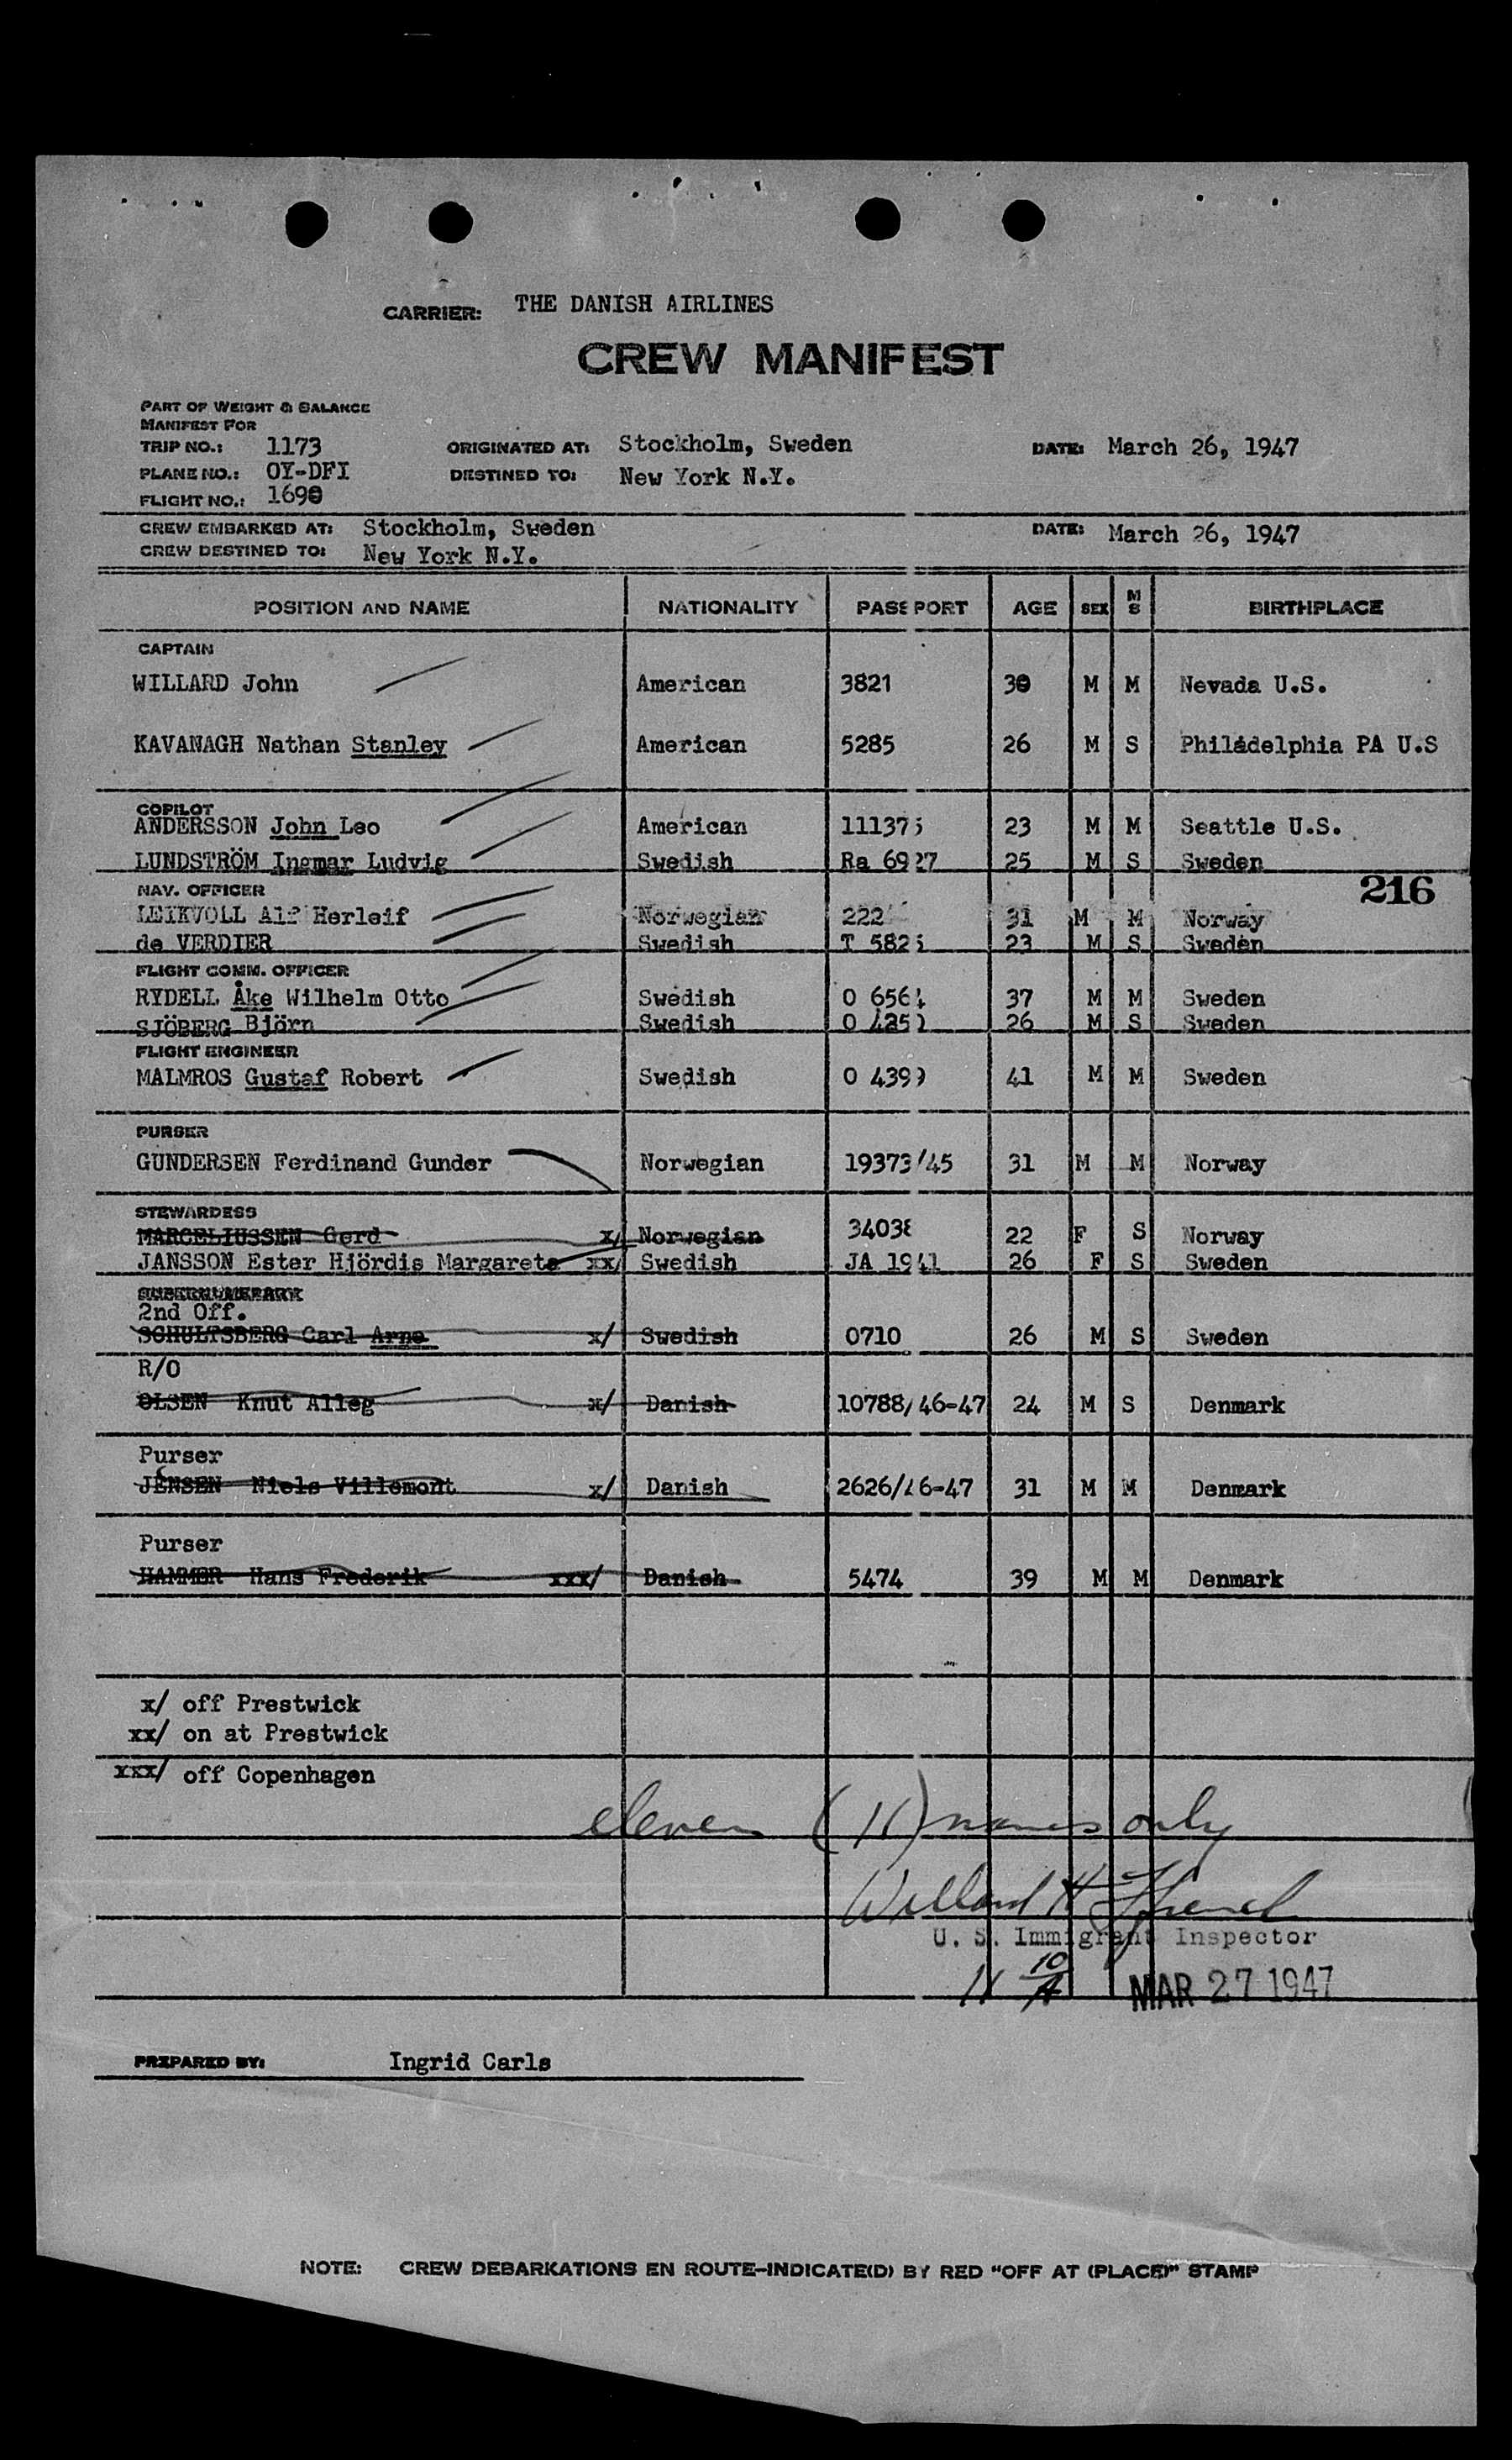 CARRIER: THE DANISH AIRLINES
CREW MANIFEST
PART OF WEIGHT & BALANCE
MANIFEST FOR
TRIP NO.: 1173 ORIGINATED AT: Stockholm, Sweden DATE: March 26, 1947
PLANE NO.: OY-DFI DESTINED TO: New York N.Y.
FLIGHT NO.: 1690
CREW EMBARKED AT: Stockholm, Sweden DATE: March 26, 1947
CREW DESTINED TO: New York N.Y.
POSITION AND NAME NATIONALITY PASSPORT AGE SEX M S BIRTHPLACE
CAPTAIN
WILLARD John American 3821 30 M M Nevada U.S.
KAVANAGH Nathan Stanley American 5285 26 M S Philadelphia PA U.S
COPILOT
ANDERSSON John Leo American 111375 23 M M Seattle U.S.
LUNDSTRÖM Ingmar Ludvig Swedish Ra 6927 25 M S Sweden
216
NAV. OFFICER
LEIKVOLL Alf Herleif Norwegian 222 31 M M Norway
de VERDIER Swedish T 5825 23 M S Sweden
FLIGHT COMM. OFFICER
RYDELL Åke Wilhelm Otto Swedish O 6564 37 M M Sweden
SJÖBERG Björn Swedish O 4250 26 M S Sweden
FLIGHT ENGINEER
MALMROS Gustaf Robert Swedish O 4399 41 M M Sweden
PURSER
GUNDERSEN Ferdinand Gunder Norwegian 19373/45 31 M M Norway
STEWARDESS
MARCELIUSSEN Gerd x/ Norwegian 34038 22 F S Norway
JANSSON Ester Hjördis Margareta xx/ Swedish JA 1941 26 F S Sweden
SUPERNUMERARY
2nd Off.
SCHULTSBERG Carl Arne x/ Swedish 0710 26 M S Sweden
R/O
OLSEN Knut Alleg x/ Danish 10788/46-47 24 M S Denmark
Purser
JENSEN Niels Villemont x/ Danish 2626/46-47 31 M M Denmark
Purser
HAMMER Hans Frederik xxx/ Danish 5474 39 M M Denmark
x/ off Prestwick
xx/ on at Prestwick
xxx/ off Copenhagen
eleven (11) names only
Willard H
U. S. Immigrant Inspector
11 10/A MAR 27 1947
PREPARED BY: Ingrid Carls
NOTE: CREW DEBARKATIONS EN ROUTE—INDICATE(D) BY RED "OFF AT (PLACE)" STAMP